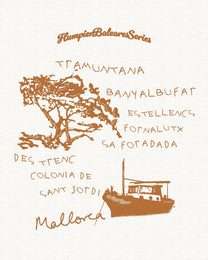 HumpierBalearesSeries
TRAMUNTANA
BANYALBUFAR
ESTELLENCS
FORNALUTX
SA FORADADA
DES TRENC
COLONIA DE
SANT JORDI
Mallorca